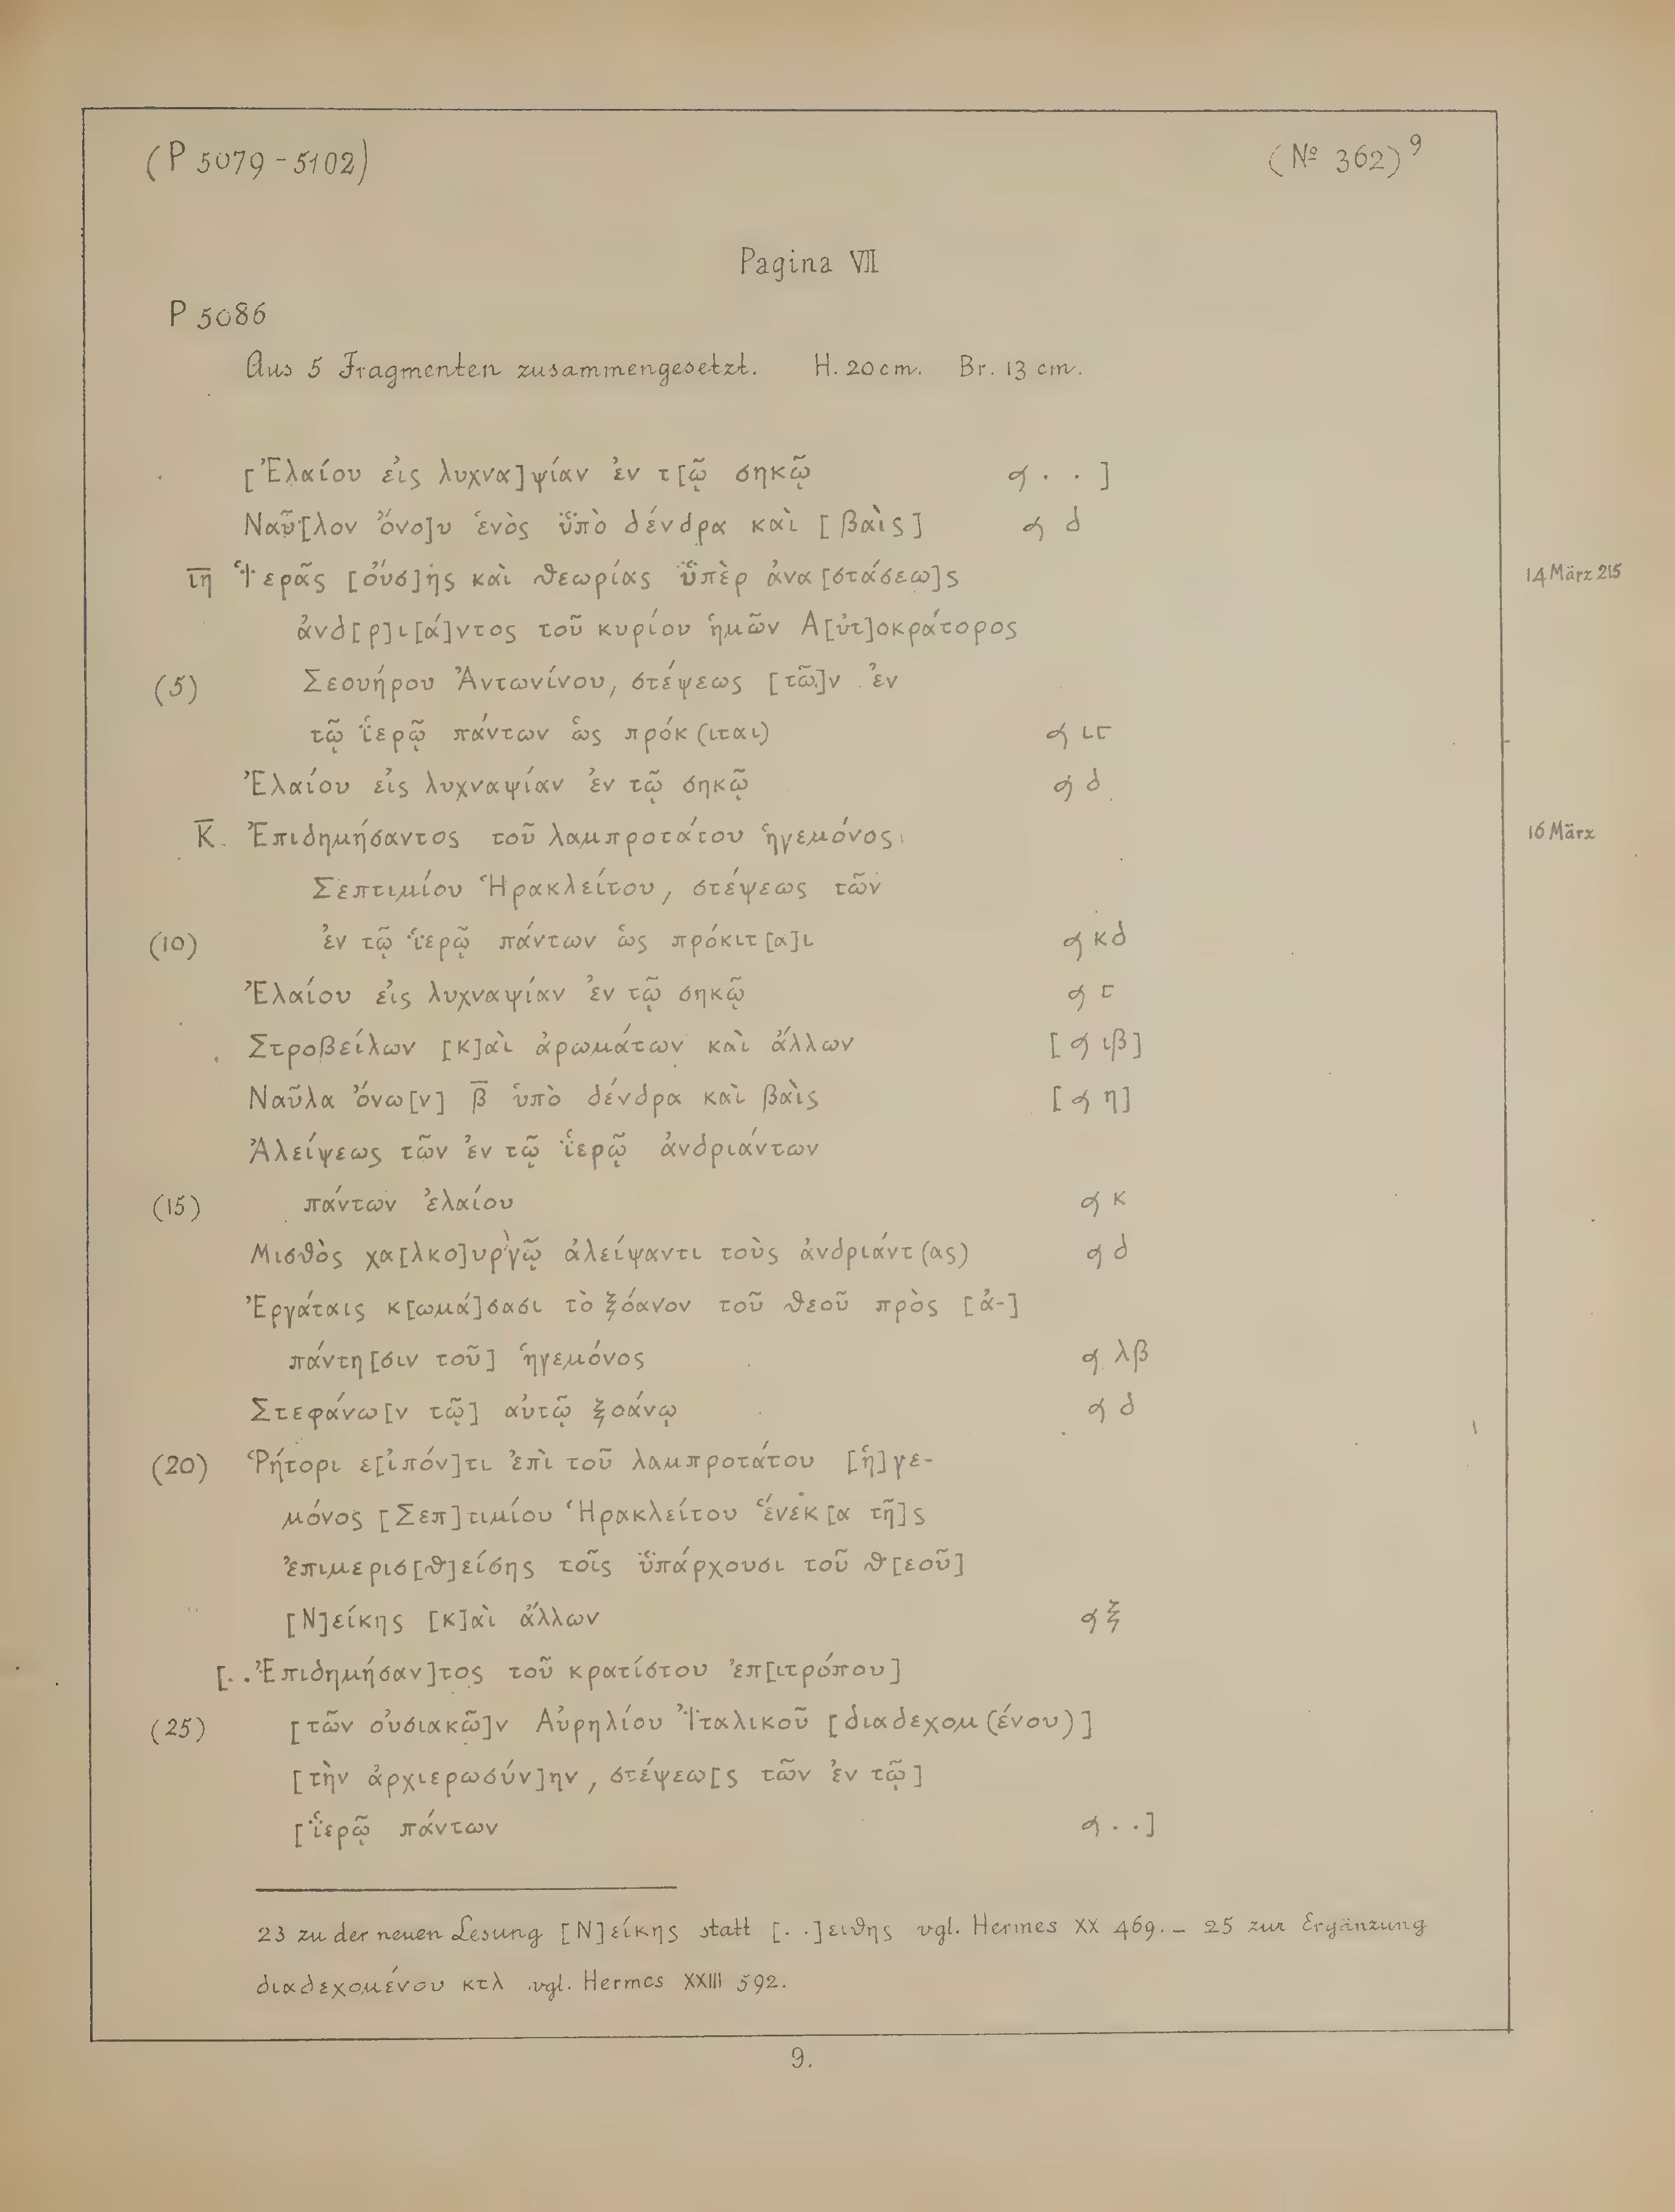 (P 5079-5102) (Nº 362)⁹
Pagina VII
P 5086
Aus 5 Fragmenten zusammengesetzt. H. 20 cm. Br. 13 cm.
[Ἐλαίου εἰς λυχνα]ψίαν ἐν τ[ῷ σηκῷ 𐅻 . . ]
Ναῦ[λον ὄνο]υ ἑνὸς ὑ̈πὸ δένδρα καὶ [βαῒς] 𐅻 δ
ι̅η̅ Ἱ̈ερᾶς [οὔσ]ης καὶ θεωρίας ὑ̈πὲρ ἀνα[στάσεω]ς 14 März 215
ἀνδ[ρ]ι[ά]ντος τοῦ κυρίου ἡμῶν Α[ὐτ]οκράτορος
(5) Σεουήρου Ἀντωνίνου, στέψεως [τῶ]ν ἐν
τῷ ἱ̈ερῷ πάντων ὡς πρόκ(ιται) 𐅻 ιϛ
Ἐλαίου εἰς λυχναψίαν ἐν τῷ σηκῷ 𐅻 δ
Κ̅. Ἐπιδημήσαντος τοῦ λαμπροτάτου ἡγεμόνος 16 März
Σεπτιμίου Ἡρακλείτου, στέψεως τῶν
(10) ἐν τῷ ἱ̈ερῷ πάντων ὡς πρόκιτ[α]ι 𐅻 κδ
Ἐλαίου εἰς λυχναψίαν ἐν τῷ σηκῷ 𐅻 ϛ
Στροβείλων [κ]αὶ ἀρωμάτων καὶ ἄλλων [𐅻 ιβ]
Ναῦλα ὄνω[ν] β̅ ὑπὸ δένδρα καὶ βαῒς [𐅻 η]
Ἀλείψεως τῶν ἐν τῷ ἱ̈ερῷ ἀνδριάντων
(15) πάντων ἐλαίου 𐅻 κ
Μισθὸς χα[λκο]υργῷ ἀλείψαντι τοὺς ἀνδριάντ(ας) 𐅻 δ
Ἐργάταις κ[ωμά]σασι τὸ ξόανον τοῦ θεοῦ πρὸς [ἀ-]
πάντη[σιν τοῦ] ἡγεμόνος 𐅻 λβ
Στεφάνω[ν τῷ] αὐτῷ ξοάνῳ 𐅻 δ
(20) Ῥήτορι ε[ἰπόν]τι ἐπὶ τοῦ λαμπροτάτου [ἡ]γε-
μόνος [Σεπ]τιμίου Ἡρακλείτου ἕνεκ[α τῆ]ς
ἐπιμερισ[θ]είσης τοῖς ὑ̈πάρχουσι τοῦ θ[εοῦ]
[Ν]είκης [κ]αὶ ἄλλων 𐅻 ξ
[. . Ἐπιδημήσαν]τος τοῦ κρατίστου ἐπ[ιτρόπου]
(25) [τῶν οὐσιακῶ]ν Αὐρηλίου Ἰ̈ταλικοῦ [διαδεχομ(ένου)]
[τὴν ἀρχιερωσύν]ην, στέψεω[ς τῶν ἐν τῷ]
[ἱ̈ερῷ πάντων 𐅻 . . ]
23 zu der neuen Lesung [Ν]είκης statt [. .]ειθης vgl. Hermes XX 469. – 25 zur Ergänzung
διαδεχομένου κτλ vgl. Hermes XXIII 592.
9.